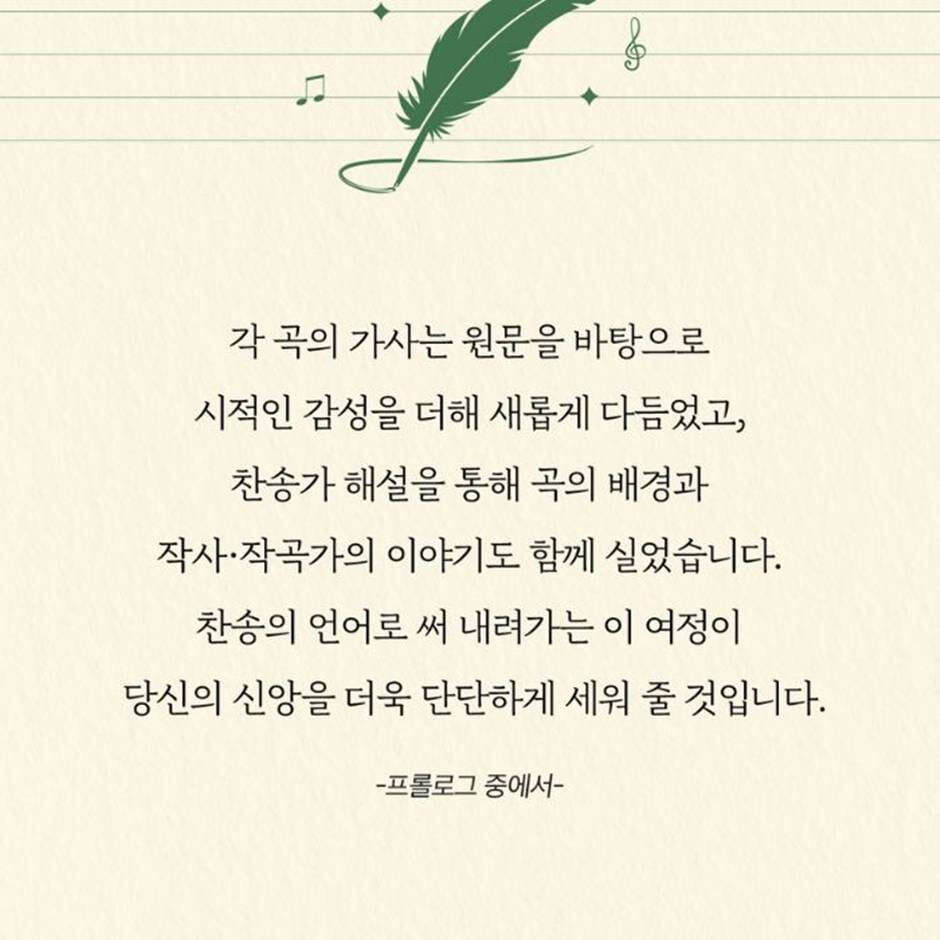 각 곡의 가사는 원문을 바탕으로
시적인 감성을 더해 새롭게 다듬었고,
찬송가 해설을 통해 곡의 배경과
작사·작곡가의 이야기도 함께 실었습니다.
찬송의 언어로 써 내려가는 이 여정이
당신의 신앙을 더욱 단단하게 세워 줄 것입니다.
-프롤로그 중에서-